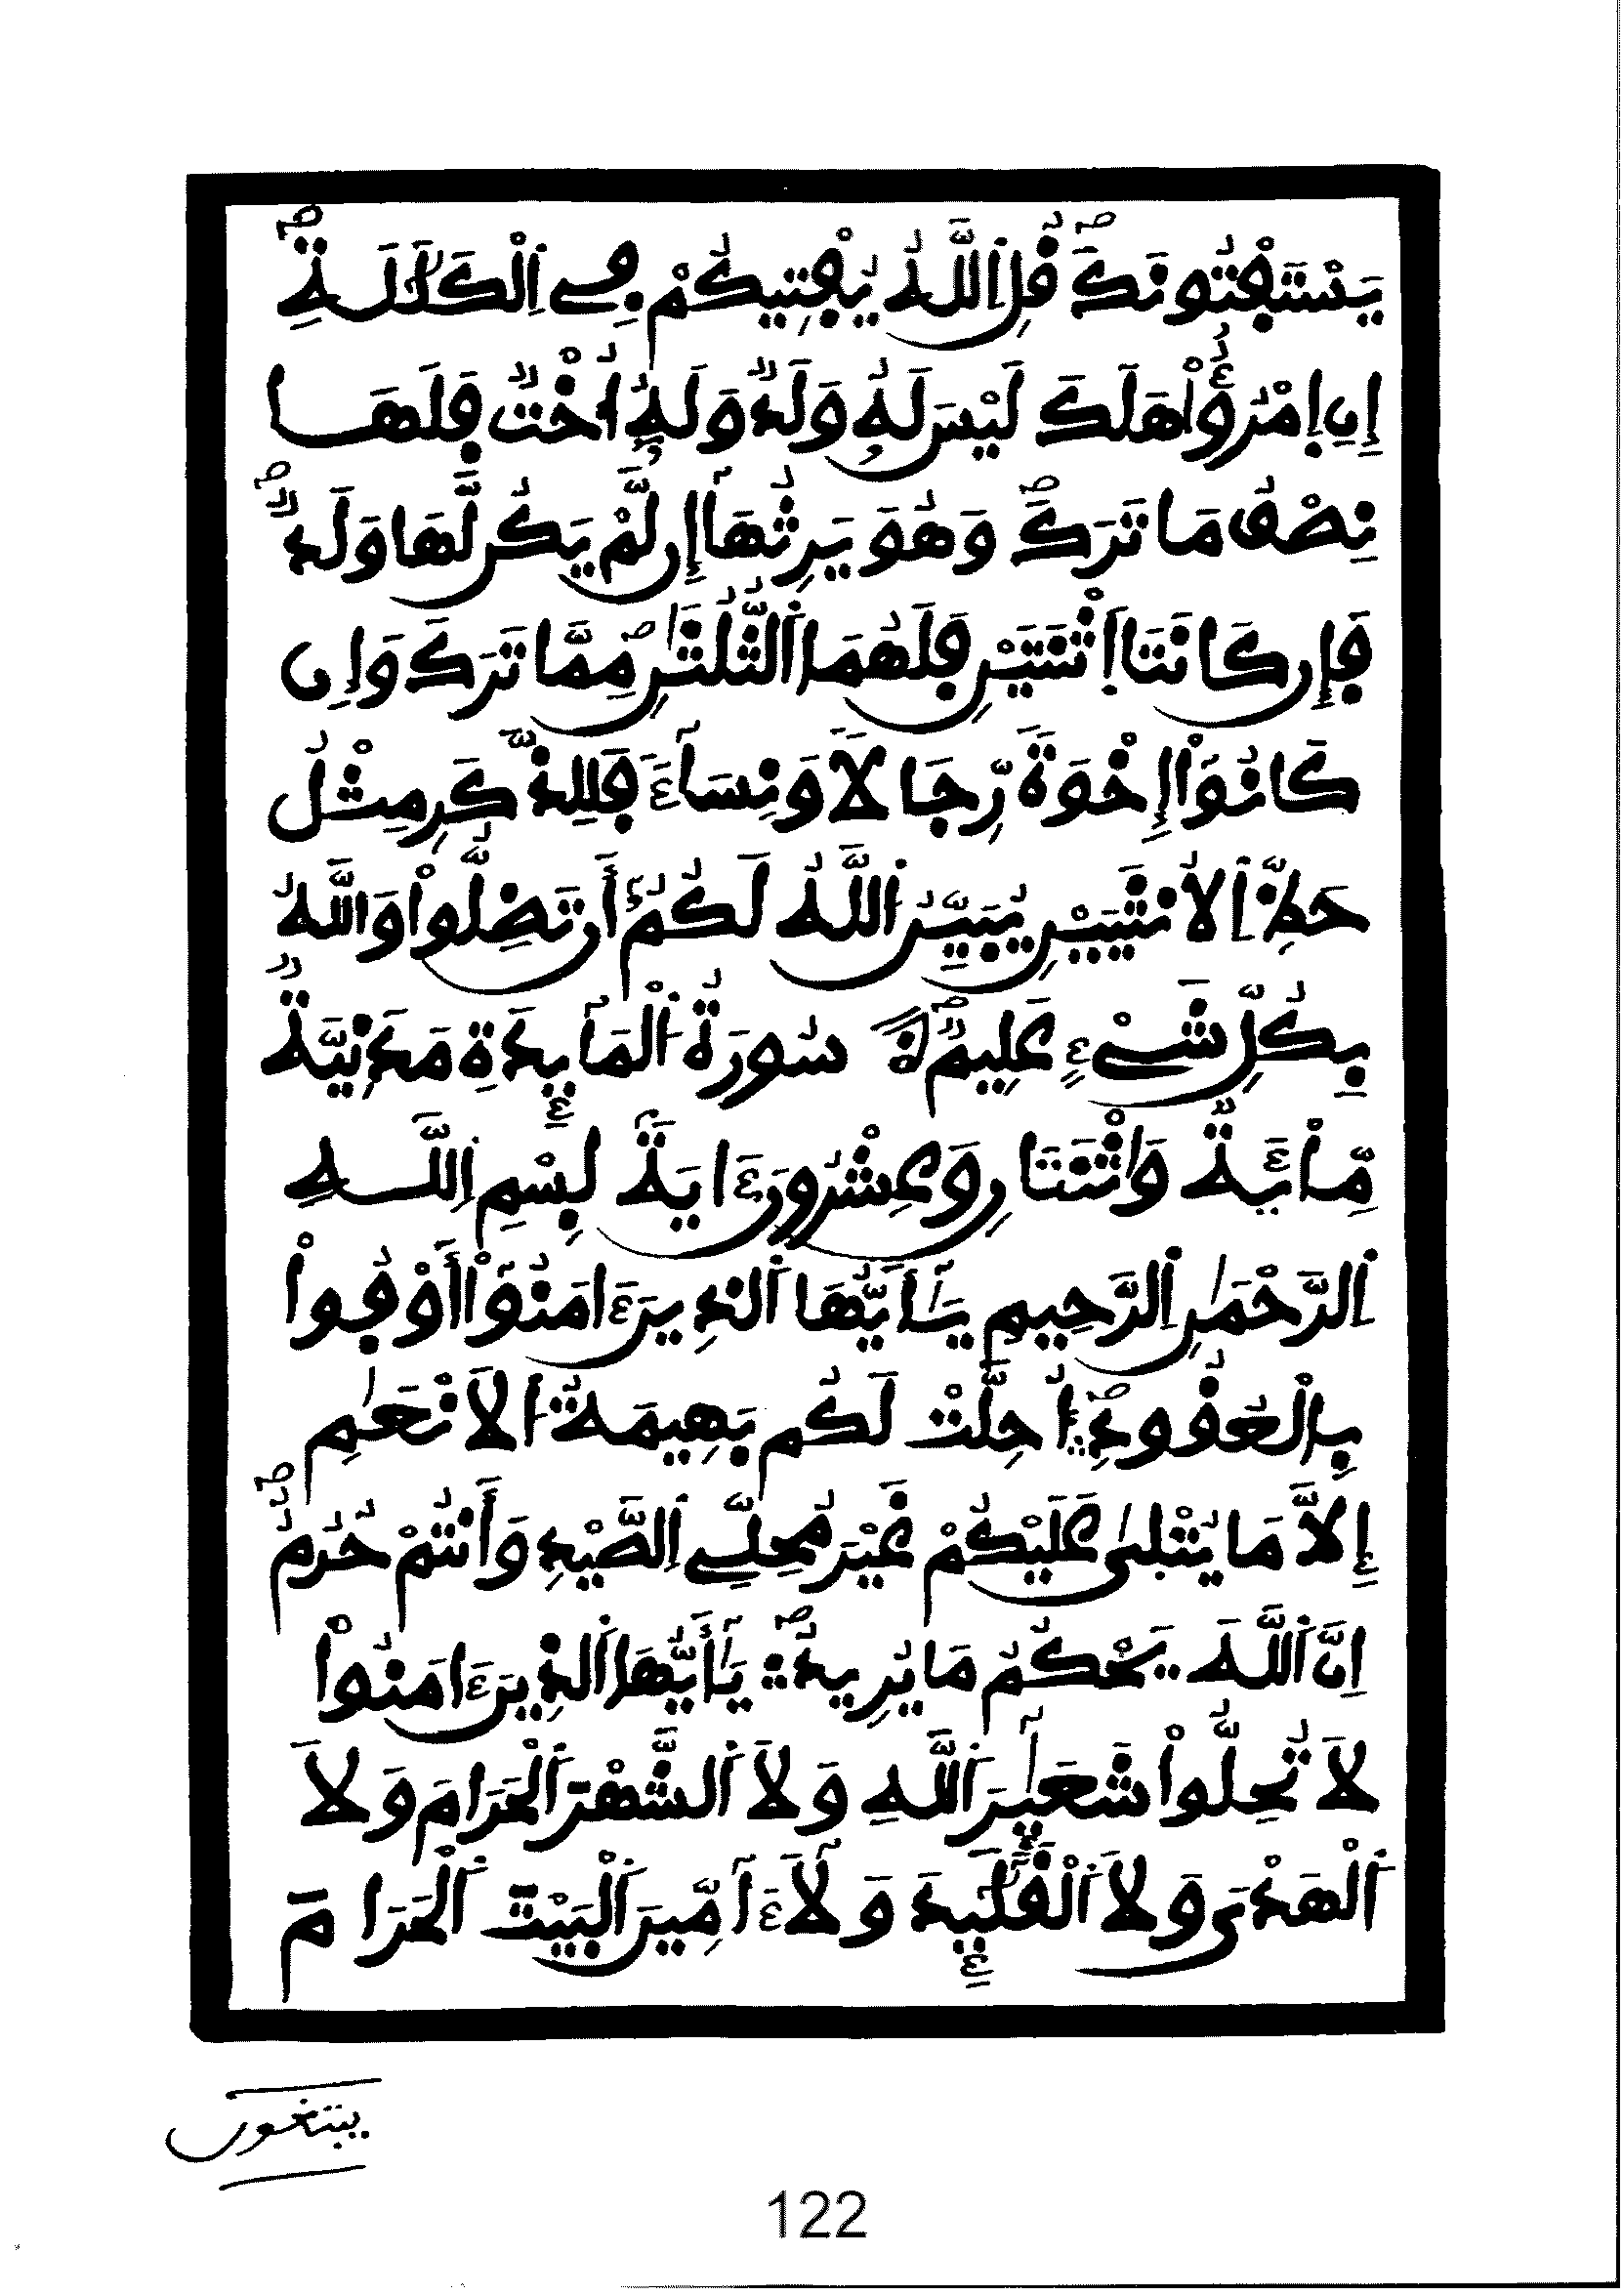 يَسْتَفْتُونَكَ قُلِ اِللَّهُ يُفْتِيكُمْ فِے اِلْكَلَٰلَةِ
إِنِ اِمْرُؤٌاْ هَلَكَ لَيْسَ لَهُۥ وَلَدٌ وَلَهُۥ أُخْتٌ فَلَهَا
نِصْفُ مَا تَرَكَ وَهُوَ يَرِثُهَآ إِن لَّمْ يَكُن لَّهَا وَلَدٌ
فَإِن كَانَتَا اَثْنَتَيْنِ فَلَهُمَا اَلثُّلُثَٰنِ مِمَّا تَرَكَ وَإِن
كَانُوٓاْ إِخْوَةً رِّجَالًا وَنِسَآءً فَلِلذَّكَرِ مِثْلُ
حَظِّ اِلْأُنثَيَيْنِ يُبَيِّنُ اَللَّهُ لَكُمُۥٓ أَن تَضِلُّواْ وَاللَّهُ
بِكُلِّ شَےْءٍ عَلِيمٌ سُورَةُ اَلْمَآئِدَةِ مَدَنِيَّةٌ
مِّاْئَةٌ وَاثْنَتَانِ وَعِشْرُونَ ءَايَةً بِسْمِ اِللَّهِ
اِلرَّحْمَٰنِ اِلرَّحِيمِ يَٰٓأَيُّهَا اَلذِينَ ءَامَنُوٓاْ أَوْفُواْ
بِالْعُقُودِ أُحِلَّتْ لَكُم بَهِيمَةُ اُلْأَنْعَٰمِ
إِلَّا مَا يُتْلَىٰ عَلَيْكُمْ غَيْرَ مُحِلِّے اِلصَّيْدِ وَأَنتُمْ حُرُمٌ
إِنَّ اَللَّهَ يَحْكُمُ مَا يُرِيدُ يَٰٓأَيُّهَا اَلذِينَ ءَامَنُواْ
لَا تُحِلُّواْ شَعَٰٓئِرَ اَللَّهِ وَلَا اَلشَّهْرَ اَلْحَرَامَ وَلَا
اَلْهَدْيَ وَلَا اَلْقَلَٰٓئِدَ وَلَآ ءَآمِّينَ اَلْبَيْتَ اَلْحَرَامَ
يبتغون
122